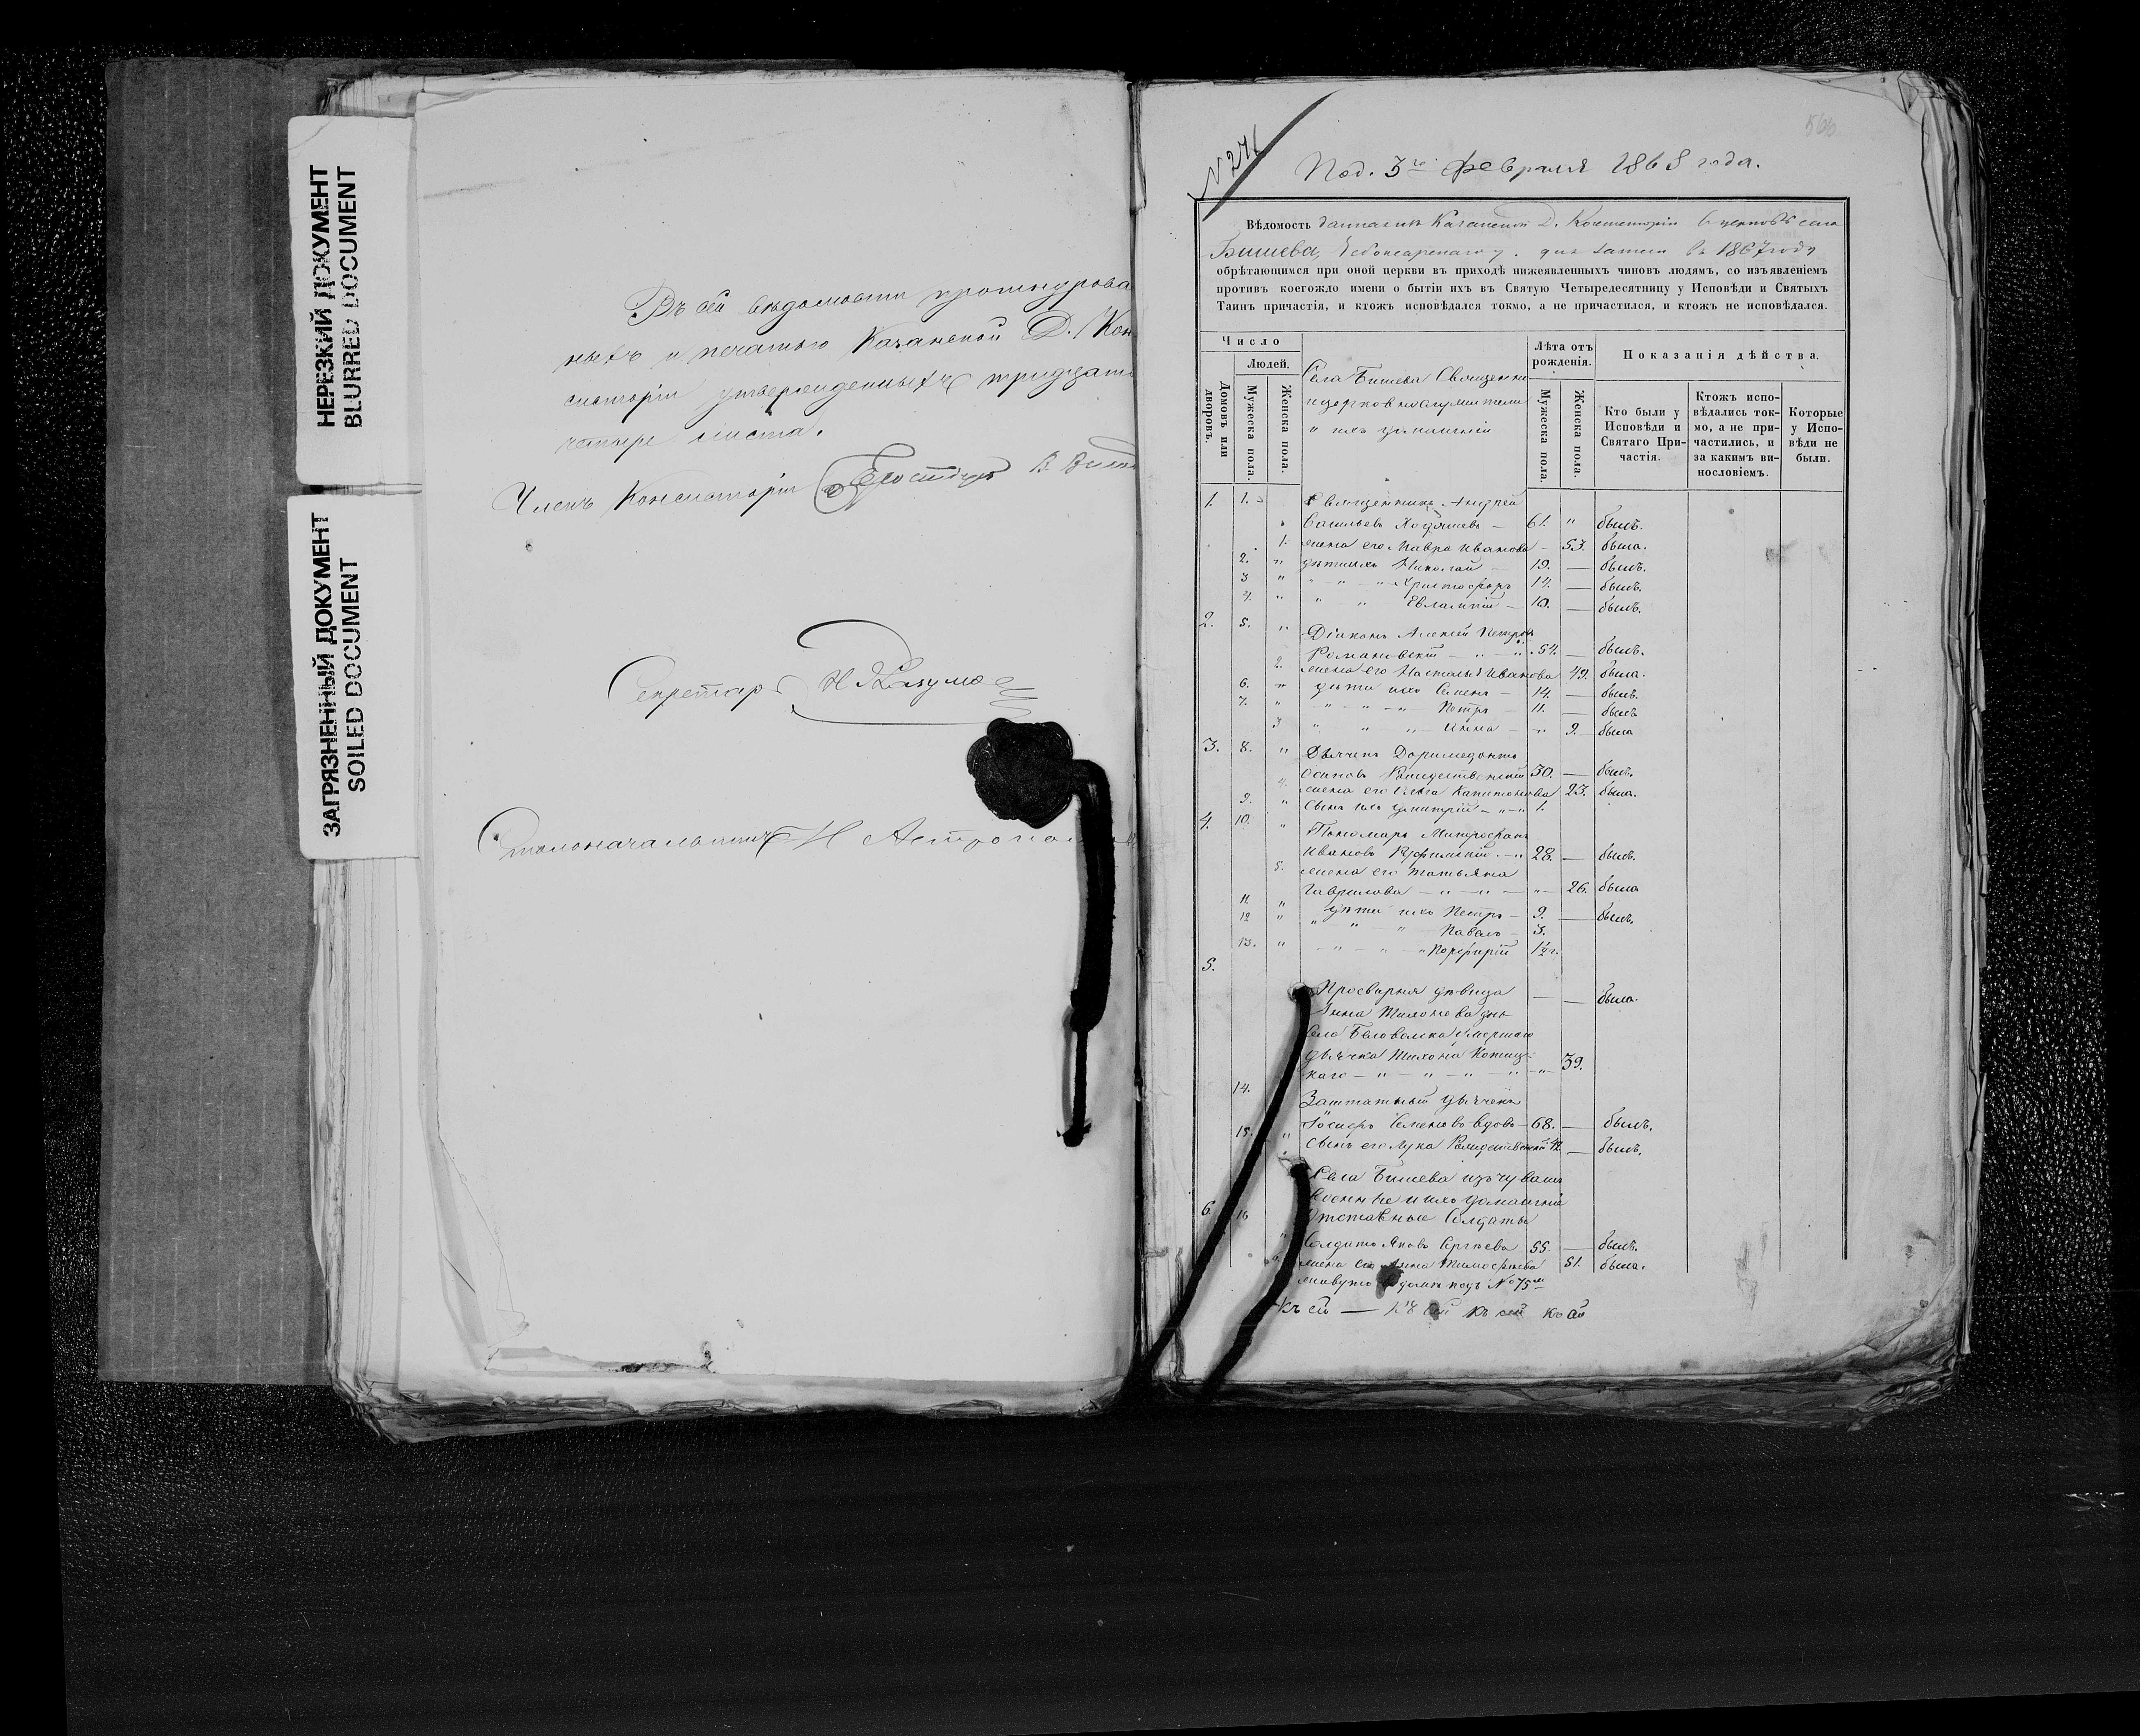 НЕРЕЗКИЙ ДОКУМЕНТ
BLURRED DOCUMENT
ЗАГРЯЗНЕННЫЙ ДОКУМЕНТ
SOILED DOCUMENT
Въ сей вѣдомости прошнурова
ныхъ и печатью Казанской Д. Кон
систоріи утвержденныхъ тридцать
четыре листа.
Членъ Консисторіи
Секретарь
Столоначальникъ
Под. 3го Февраля 1868 года.
Вѣдомость данная изъ Казанской Д. Консисторіи въ церковь села
Бишева, Чебоксарскаго у. для записи въ 1867 году
обрѣтающимся при оной церкви въ приходѣ нижеявленныхъ чиновъ людямъ, со изъявленіемъ
противъ коегождо имени о бытіи ихъ въ Святую Четыредесятницу у Исповѣди и Святыхъ
Таинъ причастія, и ктожъ исповѣдался токмо, а не причастился, и ктожъ не исповѣдался.
Число
Домовъ или дворовъ.
Людей.
Мужеска пола.
Женска пола.
Села Бишева Священно
и церковнослужители
и ихъ домашніи
Лѣта отъ рожденія.
Мужеска пола.
Женска пола.
Показанія дѣйства.
Кто были у Исповѣди и Святаго Причастія.
Ктожъ исповѣдались токмо, а не причастились, и за какимъ винословіемъ.
Которые у Исповѣди не были.
1. 1. Священникъ Андрей
Васильевъ — 61. " былъ.
1. жена его Мавра Иванова — 53. была.
2. " дѣти ихъ Николай — 19. — былъ.
3 " " " " Христофоръ 14. — былъ.
4. " " " Евлампій — 10. — былъ.
2. 5. " Діаконъ Алексій Петровъ
Романовскій — " — " 54. — былъ.
2. жена его Настасья Иванова 49. была.
6. " дѣти ихъ Семенъ — 14. — былъ.
7. " — " — " — " Петръ — 11. — былъ
3 " " " Анна — " 9. была
3. 8. " Дьячекъ Доримедонтъ
Осиповъ Рождественскій 30. — былъ.
4. жена его Ольга Капитонова 23. была.
9. " сынъ ихъ Димитрій — " — " 1.
4. 10. " Пономарь Митрофанъ
Ивановъ — " 28. — былъ.
5. жена его Татьяна
Гаврилова — " — " — " — 26. была
11. " дѣти ихъ Петръ — 9. — былъ.
12 " " " " Павелъ — 3.
13. " — " — " — " Порфирій 1½ г.
5.
Просвирня дѣвица — — была.
Анна Тихонова дщь
села Бѣловолжска умершаго
дьячка Тихона
каго — " — " — " — " — " 39.
14. Заштатный дьячекъ
Іосифъ Семеновъ вдовъ — 68. — былъ.
15. " сынъ его Лука Рождественскій — былъ.
Села Бишева изъ чувашъ
Военные и ихъ домашніи
6. 16 Отставные Солдаты
" Солдатъ Яковъ Сергѣевъ 55. — былъ.
жена его Анна Тимофѣева 51. была.
живутъ въ домѣ подъ № 75мъ
къ сей — къ сей къ сей къ сей